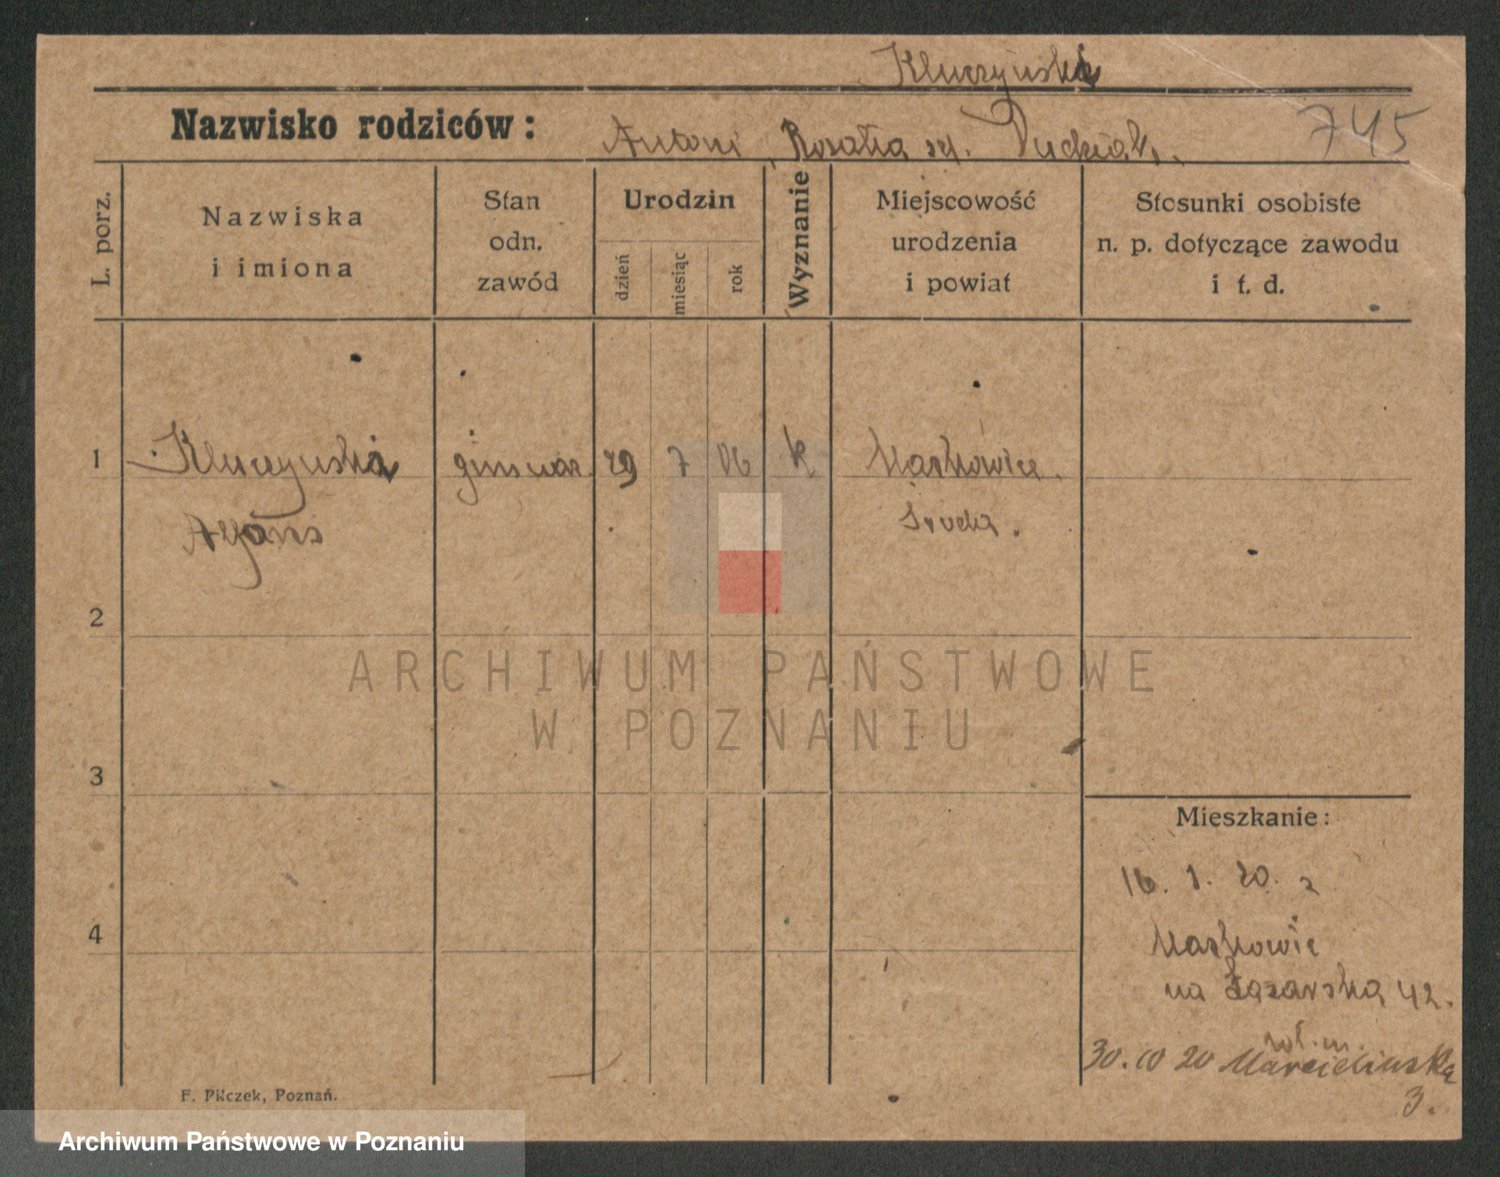 Kluczyński
Nazwisko rodziców: Antoni, Rosalia 745
L. porz.
Nazwiska
i imiona
Stan
odn.
zawód
Urodzin
dzień
miesiąc
rok
Wyznanie
Miejscowość
urodzenia
i powiat
Stosunki osobiste
n. p. dotyczące zawodu
i t. d.
1 Kluczyński 29 7 06 k
Alfons
Środa.
2
3
4
Mieszkanie:
16. 1. 20. z
na Łazarską 42.
30. 10 20
3.
F. Pilczek, Poznań.
ARCHIWUM PAŃSTWOWE
W POZNANIU
Archiwum Państwowe w Poznaniu